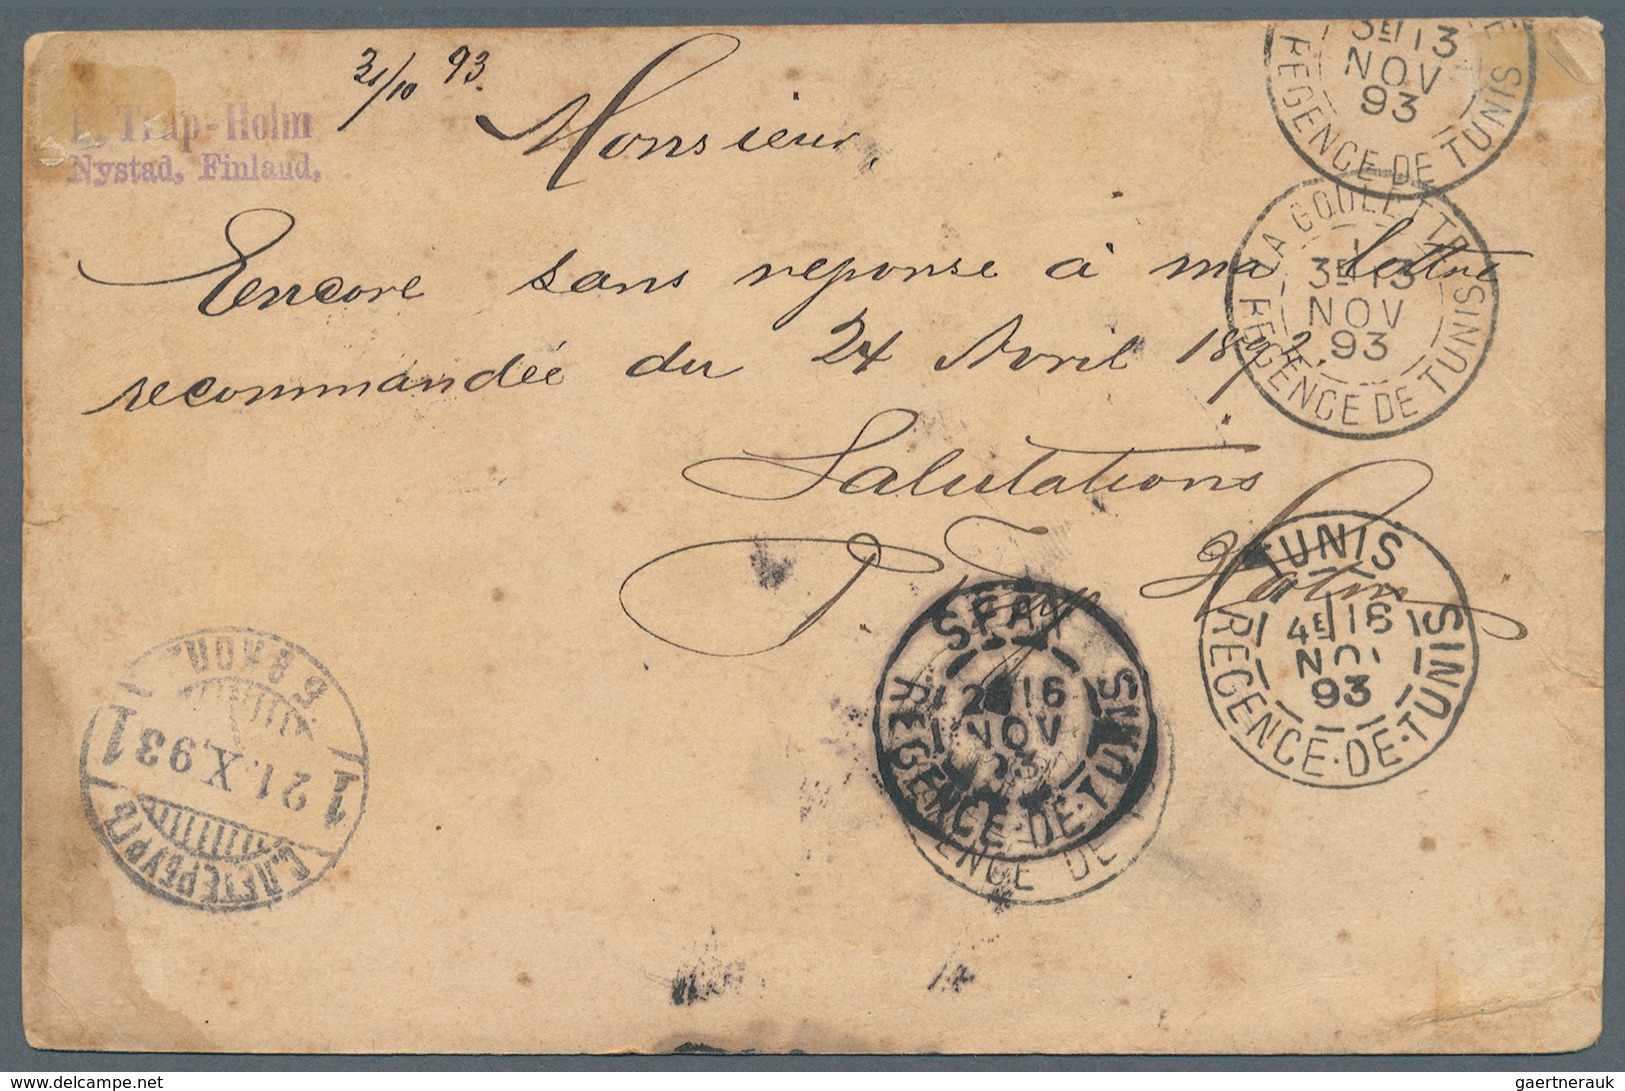 Trap-Holm
Nystad, Finland,
31/10 93.
Monsieur,
Encore sans reponse à ma lettre
recommandée du 24 Avril 1892.
Salutations
Trap Holm
3E/13
NOV
93
REGENCE DE TUNIS
LA GOULETTE
1
3E/13
NOV
93
REGENCE DE TUNIS
TUNIS
4E/16
NOV
93
REGENCE·DE·TUNIS
SFAX
16
NOV
93
REGENCE·DE·TUNIS
ENCE DE
ВОКЗ
1 21.X.93 1
С.ПЕТЕРБУРГЪ
delcampe.net
gaertnerauk